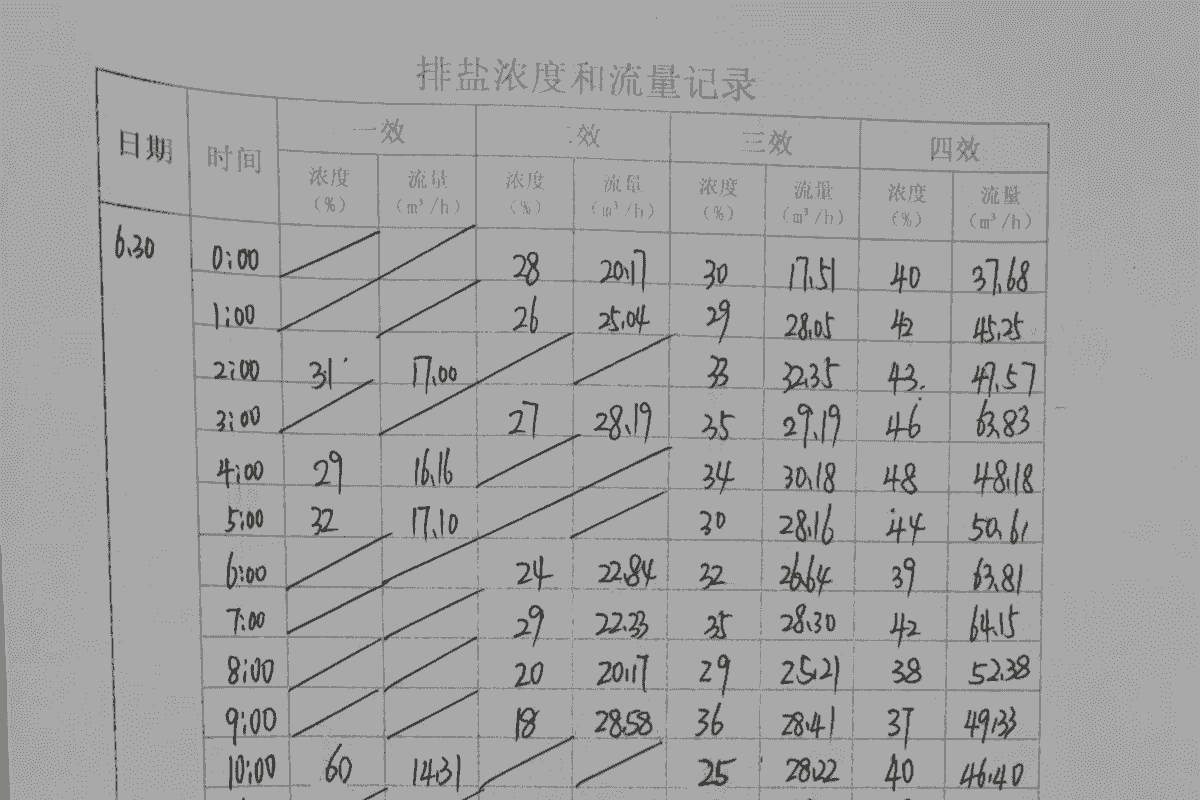 排盐浓度和流量记录
日期 时间 一效 二效 三效 四效
浓度 流量 浓度 流量 浓度 流量 浓度 流量
(%) (m³/h) (%) (m³/h) (%) (m³/h) (%) (m³/h)
6.30 0:00 28 20.17 30 17.51 40 37.68
1:00 26 25.04 29 28.05 42 45.25
2:00 31 17.00 33 32.35 43. 47.57
3:00 27 28.19 35 29.19 46 63.83
4:00 29 16.16 34 30.18 48 48.18
5:00 32 17.10 30 28.16 44 50.61
6:00 24 22.84 32 26.64 39 63.81
7:00 29 22.33 35 28.30 42 64.15
8:00 20 20.17 29 25.21 38 52.38
9:00 18 28.58 36 28.41 37 49.33
10:00 60 14.31 25 28.22 40 46.40